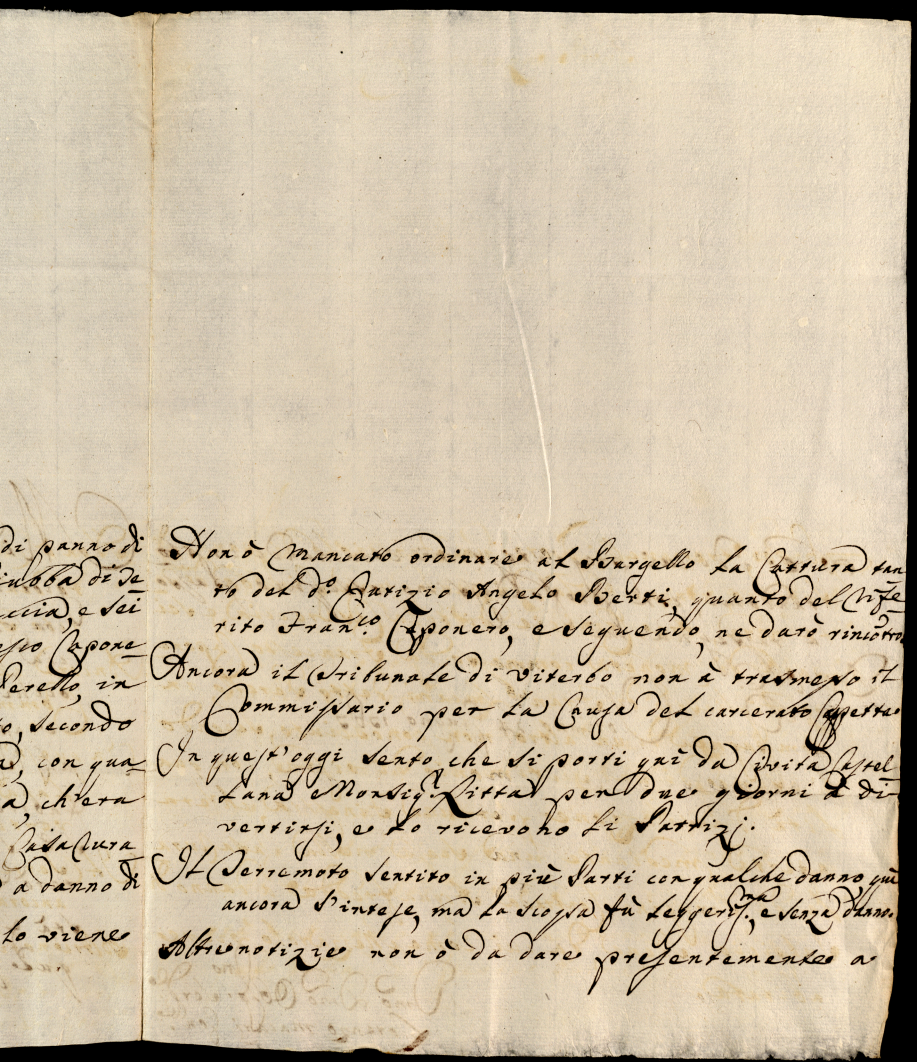 di panno di
iubba di Se=
ccia, e sei
esco Capone=
Perello, in
o, secondo
a, con qua=
a, ch'era
Casa Cura=
a danno di
lo viene
Non ò mancato ordinare al Bargello la Cattura tan
to del d.º Patrizio Angelo Berti, quanto del rife=
rito Fran.co Caponero, e seguendo, ne darò rincõtro
Ancora il Tribunale di Viterbo non à trasmesso il
Commissario per la Causa del carcerato Cappette
In quest'oggi sento, che si porti quì da Civita Castel=
lana Monsig.r Litta per due giorni à di=
vertirsi, e lo ricevono li Patrizj.
Il Terremoto sentito in più Parti con qualche danno, quì
ancora s'intese, ma la scossa fù leggeriss.ma, e senza danno.
Altre notizie non ò da dare presentemente a